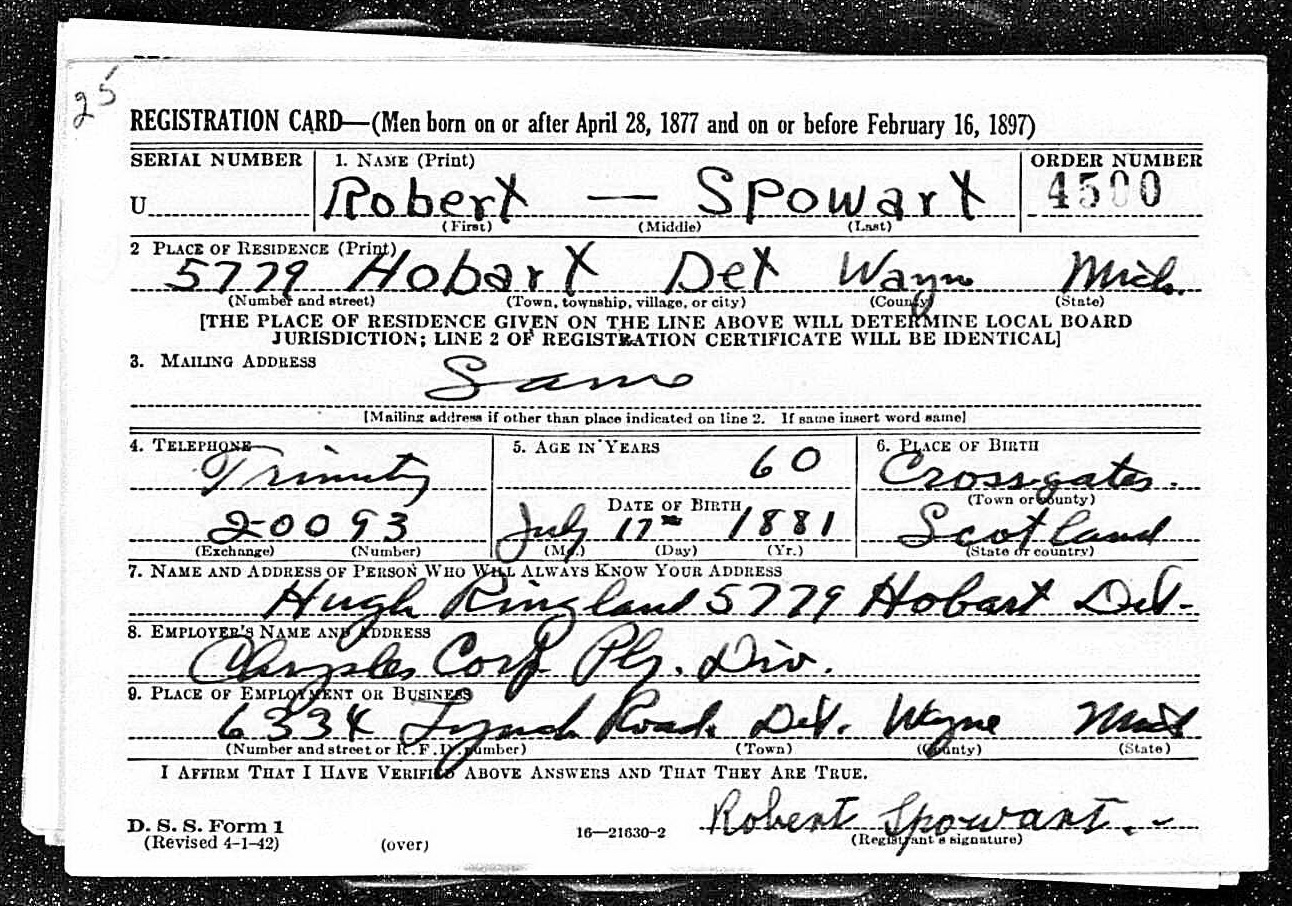 25
REGISTRATION CARD—(Men born on or after April 28, 1877 and on or before February 16, 1897)
SERIAL NUMBER 1. NAME (Print) ORDER NUMBER
U Robert — Spowart 4500
(First) (Middle) (Last)
2 PLACE OF RESIDENCE (Print)
5779 Hobart Det Wayne Mich.
(Number and street) (Town, township, village, or city) (County) (State)
[THE PLACE OF RESIDENCE GIVEN ON THE LINE ABOVE WILL DETERMINE LOCAL BOARD
JURISDICTION; LINE 2 OF REGISTRATION CERTIFICATE WILL BE IDENTICAL]
3. MAILING ADDRESS
Same
[Mailing address if other than place indicated on line 2. If same insert word same]
4. TELEPHONE 5. AGE IN YEARS 6. PLACE OF BIRTH
Trinity 60 Crossgates.
(Town or county)
DATE OF BIRTH
20093 July 17th 1881 Scotland
(Exchange) (Number) (Mo.) (Day) (Yr.) (State or country)
7. NAME AND ADDRESS OF PERSON WHO WILL ALWAYS KNOW YOUR ADDRESS
Hugh Ringland 5779 Hobart Det-
8. EMPLOYER'S NAME AND ADDRESS
Chrysler Corp. Ply. Div.
9. PLACE OF EMPLOYMENT OR BUSINESS
6334 Lynch Road. Det. Wayne Mich
(Number and street or R. F. D. number) (Town) (County) (State)
I AFFIRM THAT I HAVE VERIFIED ABOVE ANSWERS AND THAT THEY ARE TRUE.
Robert Spowart.
D. S. S. Form 1
(Revised 4-1-42) (over) 16—21630-2 (Registrant's signature)